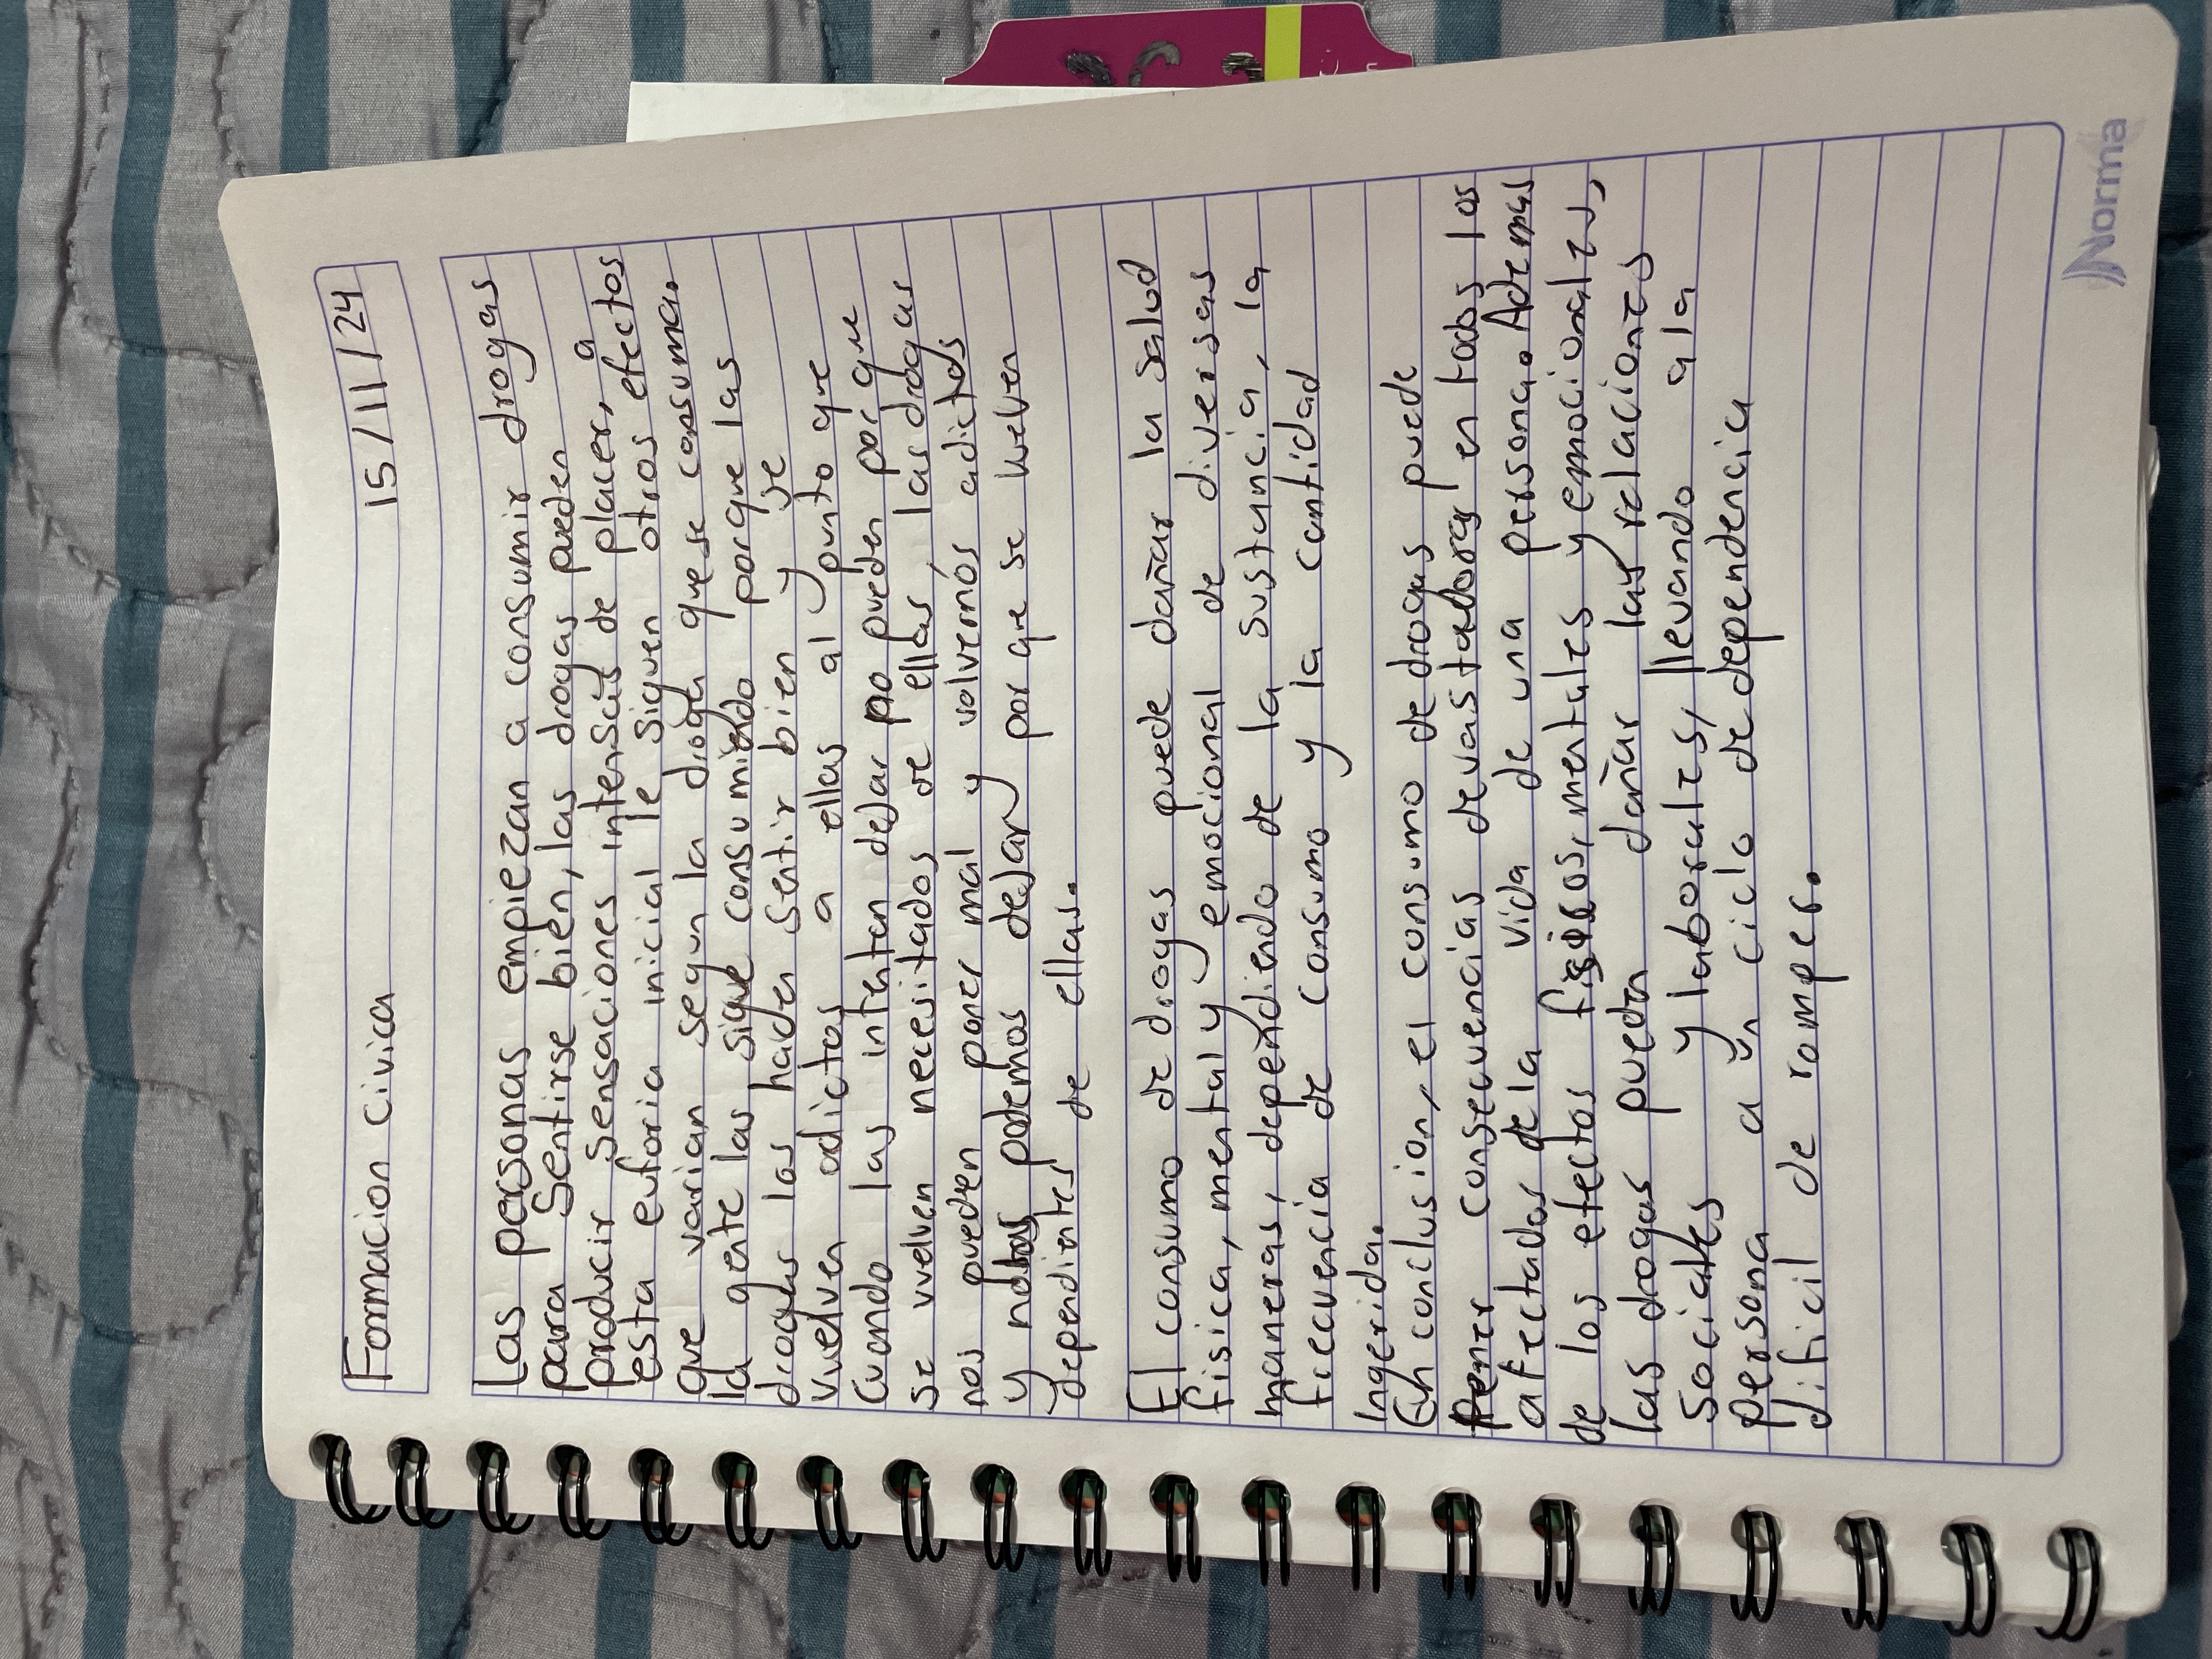 Formacion civica 15/11/24
Las personas empiezan a consumir drogas
para Sentirse bien, las drogas pueden
producir sensaciones intensas de placer, a
esta euforia inicial le siguen otros efectos
que varian segun la droga que se consuma.
la gente las sigue consumiendo porque las
drogas las hacen sentir bien y se
vuelven adictos a ellas al punto que
Cuando las intentan dejar no pueden por que
se vuelven necesitados de ellas, las drogas
nos pueden poner mal y volvernós adictos
y no las podemos dejar por que se welven
dependientes de ellas.
El consumo de drogas puede dañar la salud
fisica, mental y emocional de diversas
maneras, dependiendo de la sustancia, la
frecuencia de consumo y la cantidad
Ingerida.
En conclusion, el consumo de drogas puede
tener consecuencias devastadoras en todos los
afectados de la vida de una persona. Ademas
de los efectos fisicos, mentales y emocionales,
las drogas pueden dañar las relaciones
Sociales y laborales, llevando a la
persona a un ciclo de dependencia
dificil de romper.
Norma